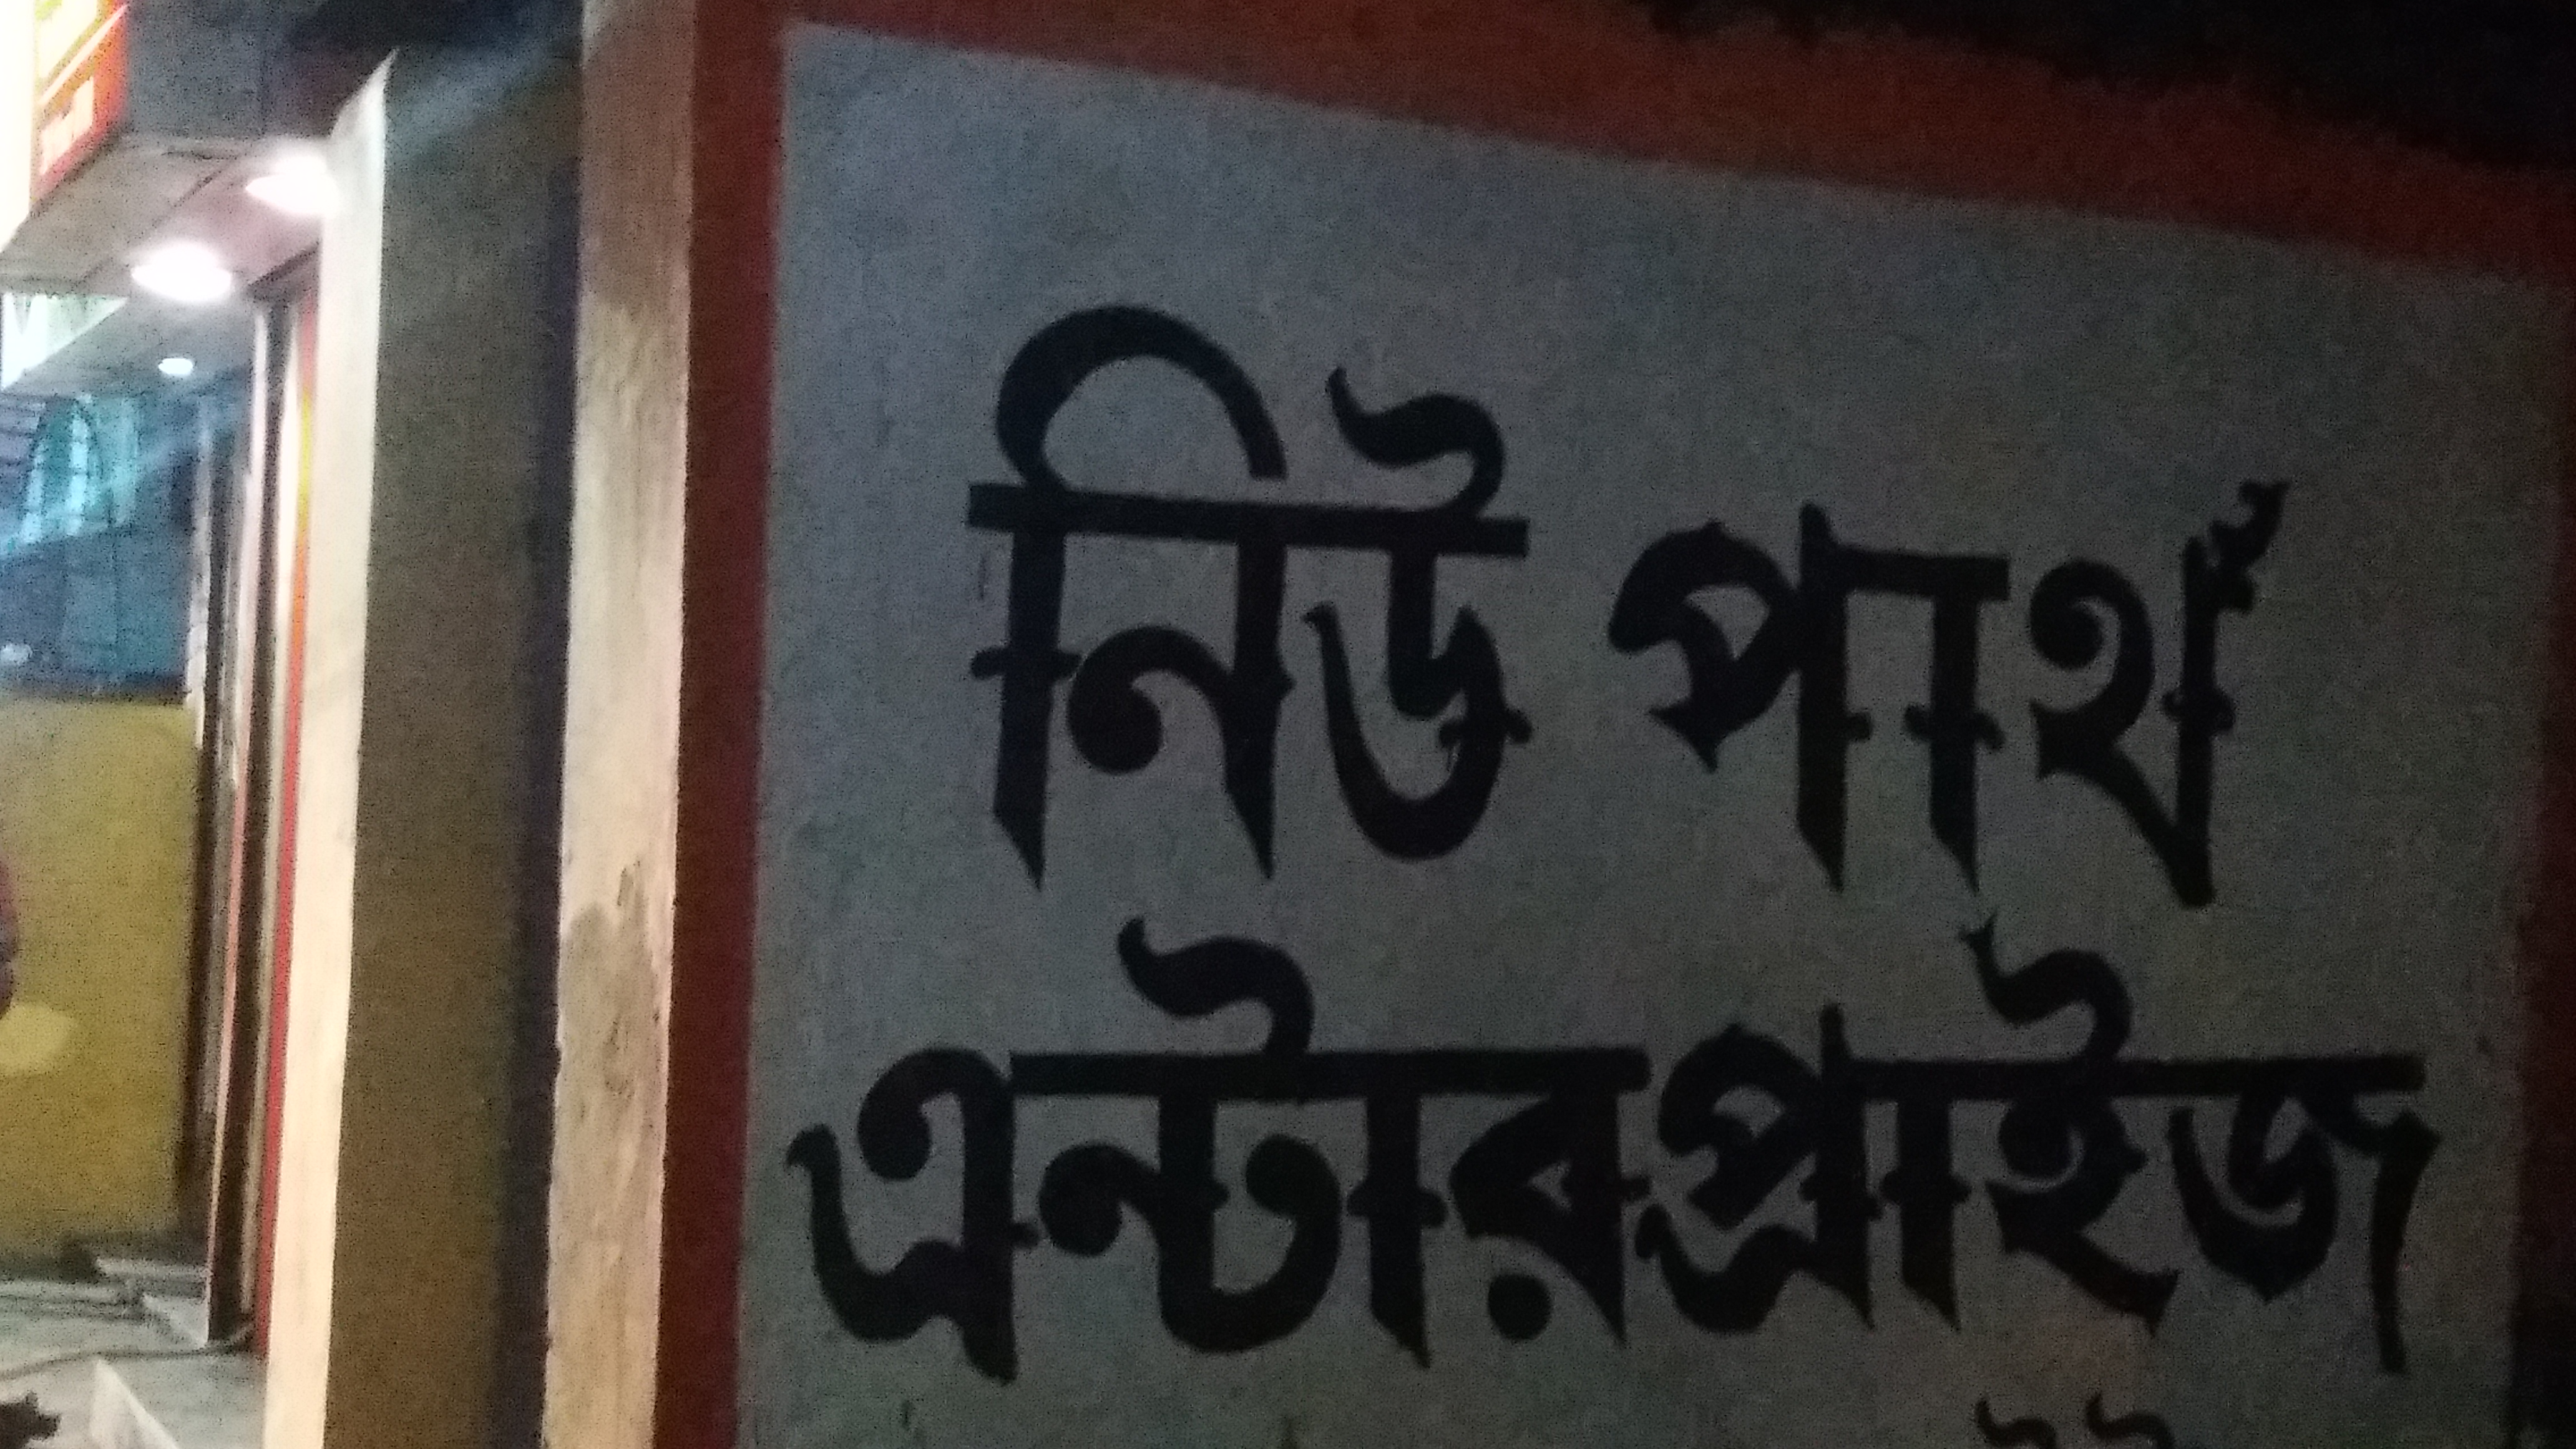 নিউ পার্থ
এন্টারপ্রাইজ